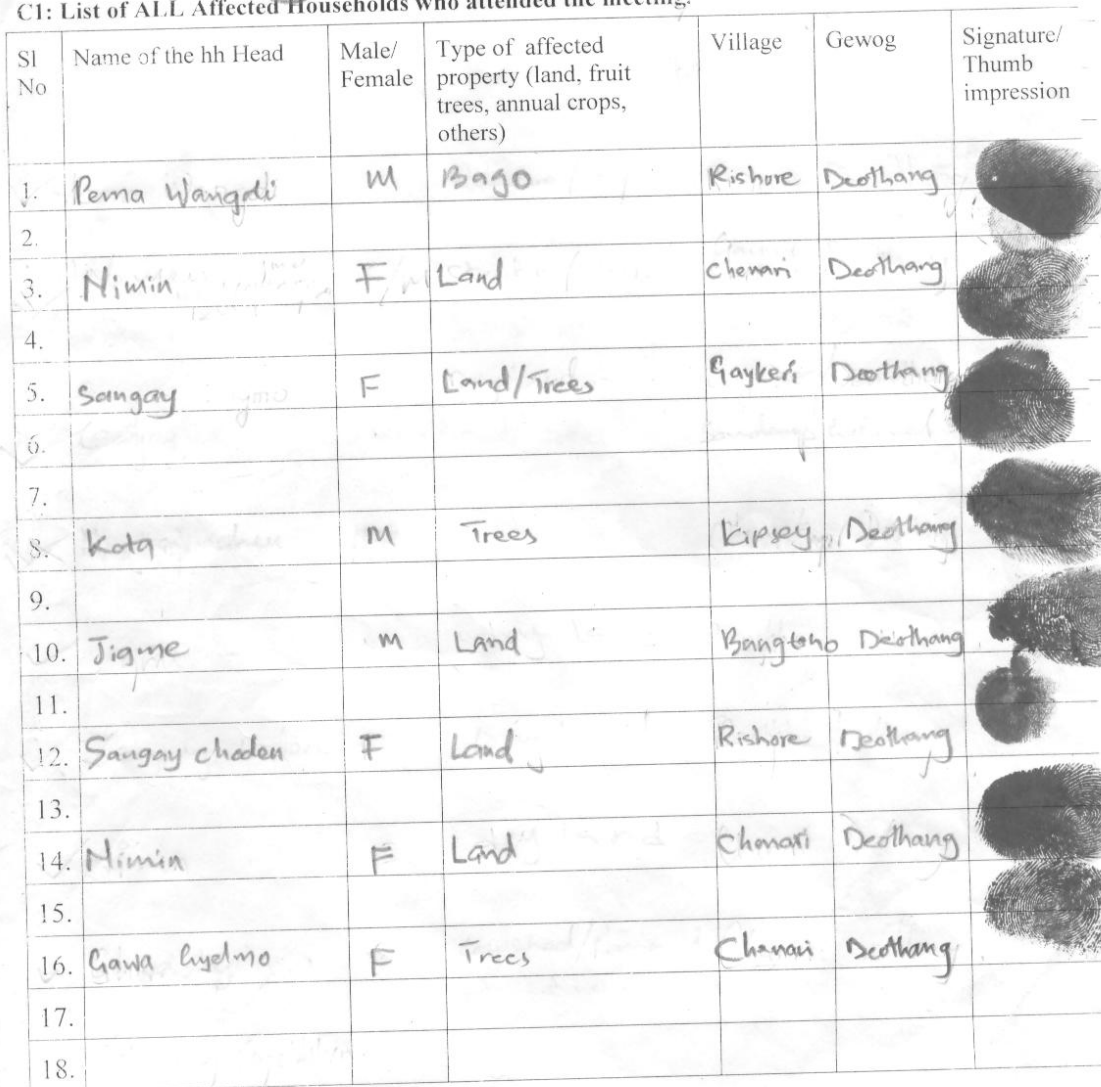 C1: List of ALL Affected Households who attended the meeting.
Sl No Name of the hh Head Male/ Female Type of affected property (land, fruit trees, annual crops, others) Village Gewog Signature/ Thumb impression
1. Pema Wangdi M Bago Rishore Deothang
2.
3. Nimin F Land Chenari Deothang
4.
5. Sangay F Land/Trees Gaykeri Deothang
6.
7.
8. Kota M Trees Kipsey Deothang
9.
10. Jigme M Land Bangtsho Deothang
11.
12. Sangay choden F Land Rishore Deothang
13.
14. Nimin F Land Chenari Deothang
15.
16. Gawa Gyelmo F Trees Chenari Deothang
17.
18.